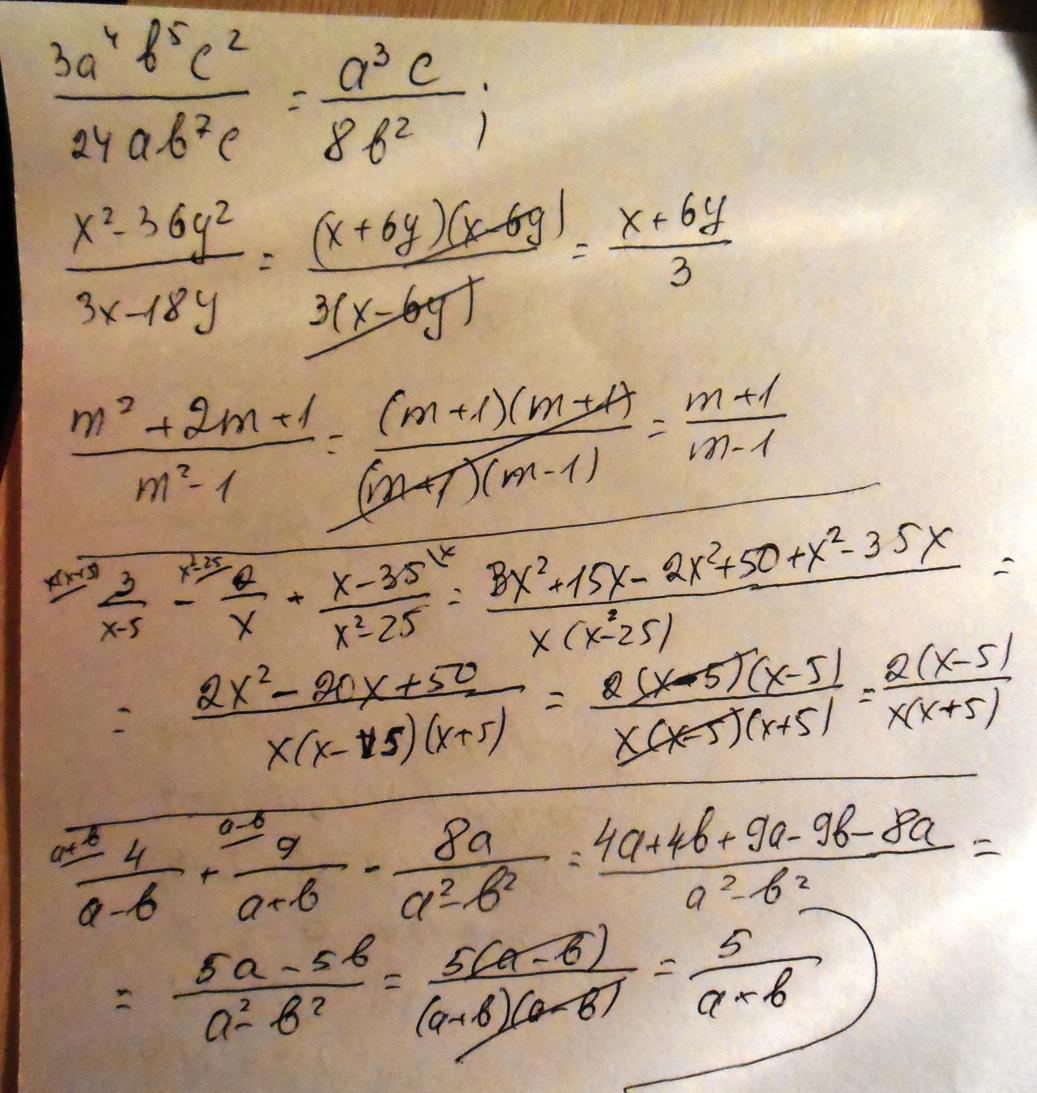 3a⁴b⁵c² / 24ab⁷c = a³c / 8b² ;
x²-36y² / 3x-18y = (x+6y)(x-6y) / 3(x-6y) = x+6y / 3
m²+2m+1 / m²-1 = (m+1)(m+1) / (m+1)(m-1) = m+1 / m-1
x(x+5) 3 / x-5 - x²-25 2 / x + x-35 \x / x²-25 = 3x²+15x-2x²+50+x²-35x / x(x²-25) =
= 2x²-20x+50 / x(x-5)(x+5) = 2(x-5)(x-5) / x(x-5)(x+5) = 2(x-5) / x(x+5)
a+b 4 / a-b + a-b 9 / a+b - 8a / a²-b² = 4a+4b+9a-9b-8a / a²-b² =
= 5a-5b / a²-b² = 5(a-b) / (a+b)(a-b) = 5 / a+b